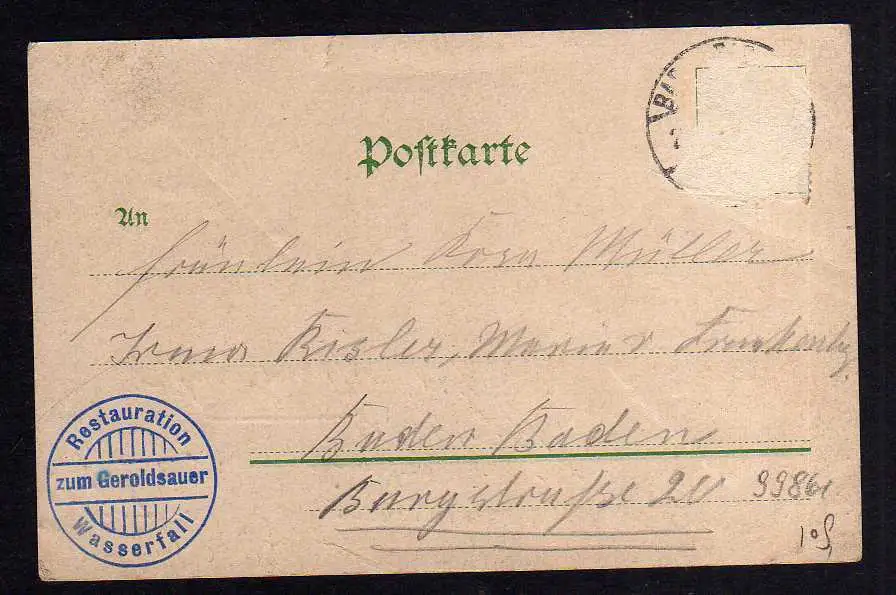 Postkarte
An
Fräulein Rosa Müller
Irma Kisler, Marie
Baden Baden
Burgstraße 20
Restauration
zum Geroldsauer
Wasserfall
BAD